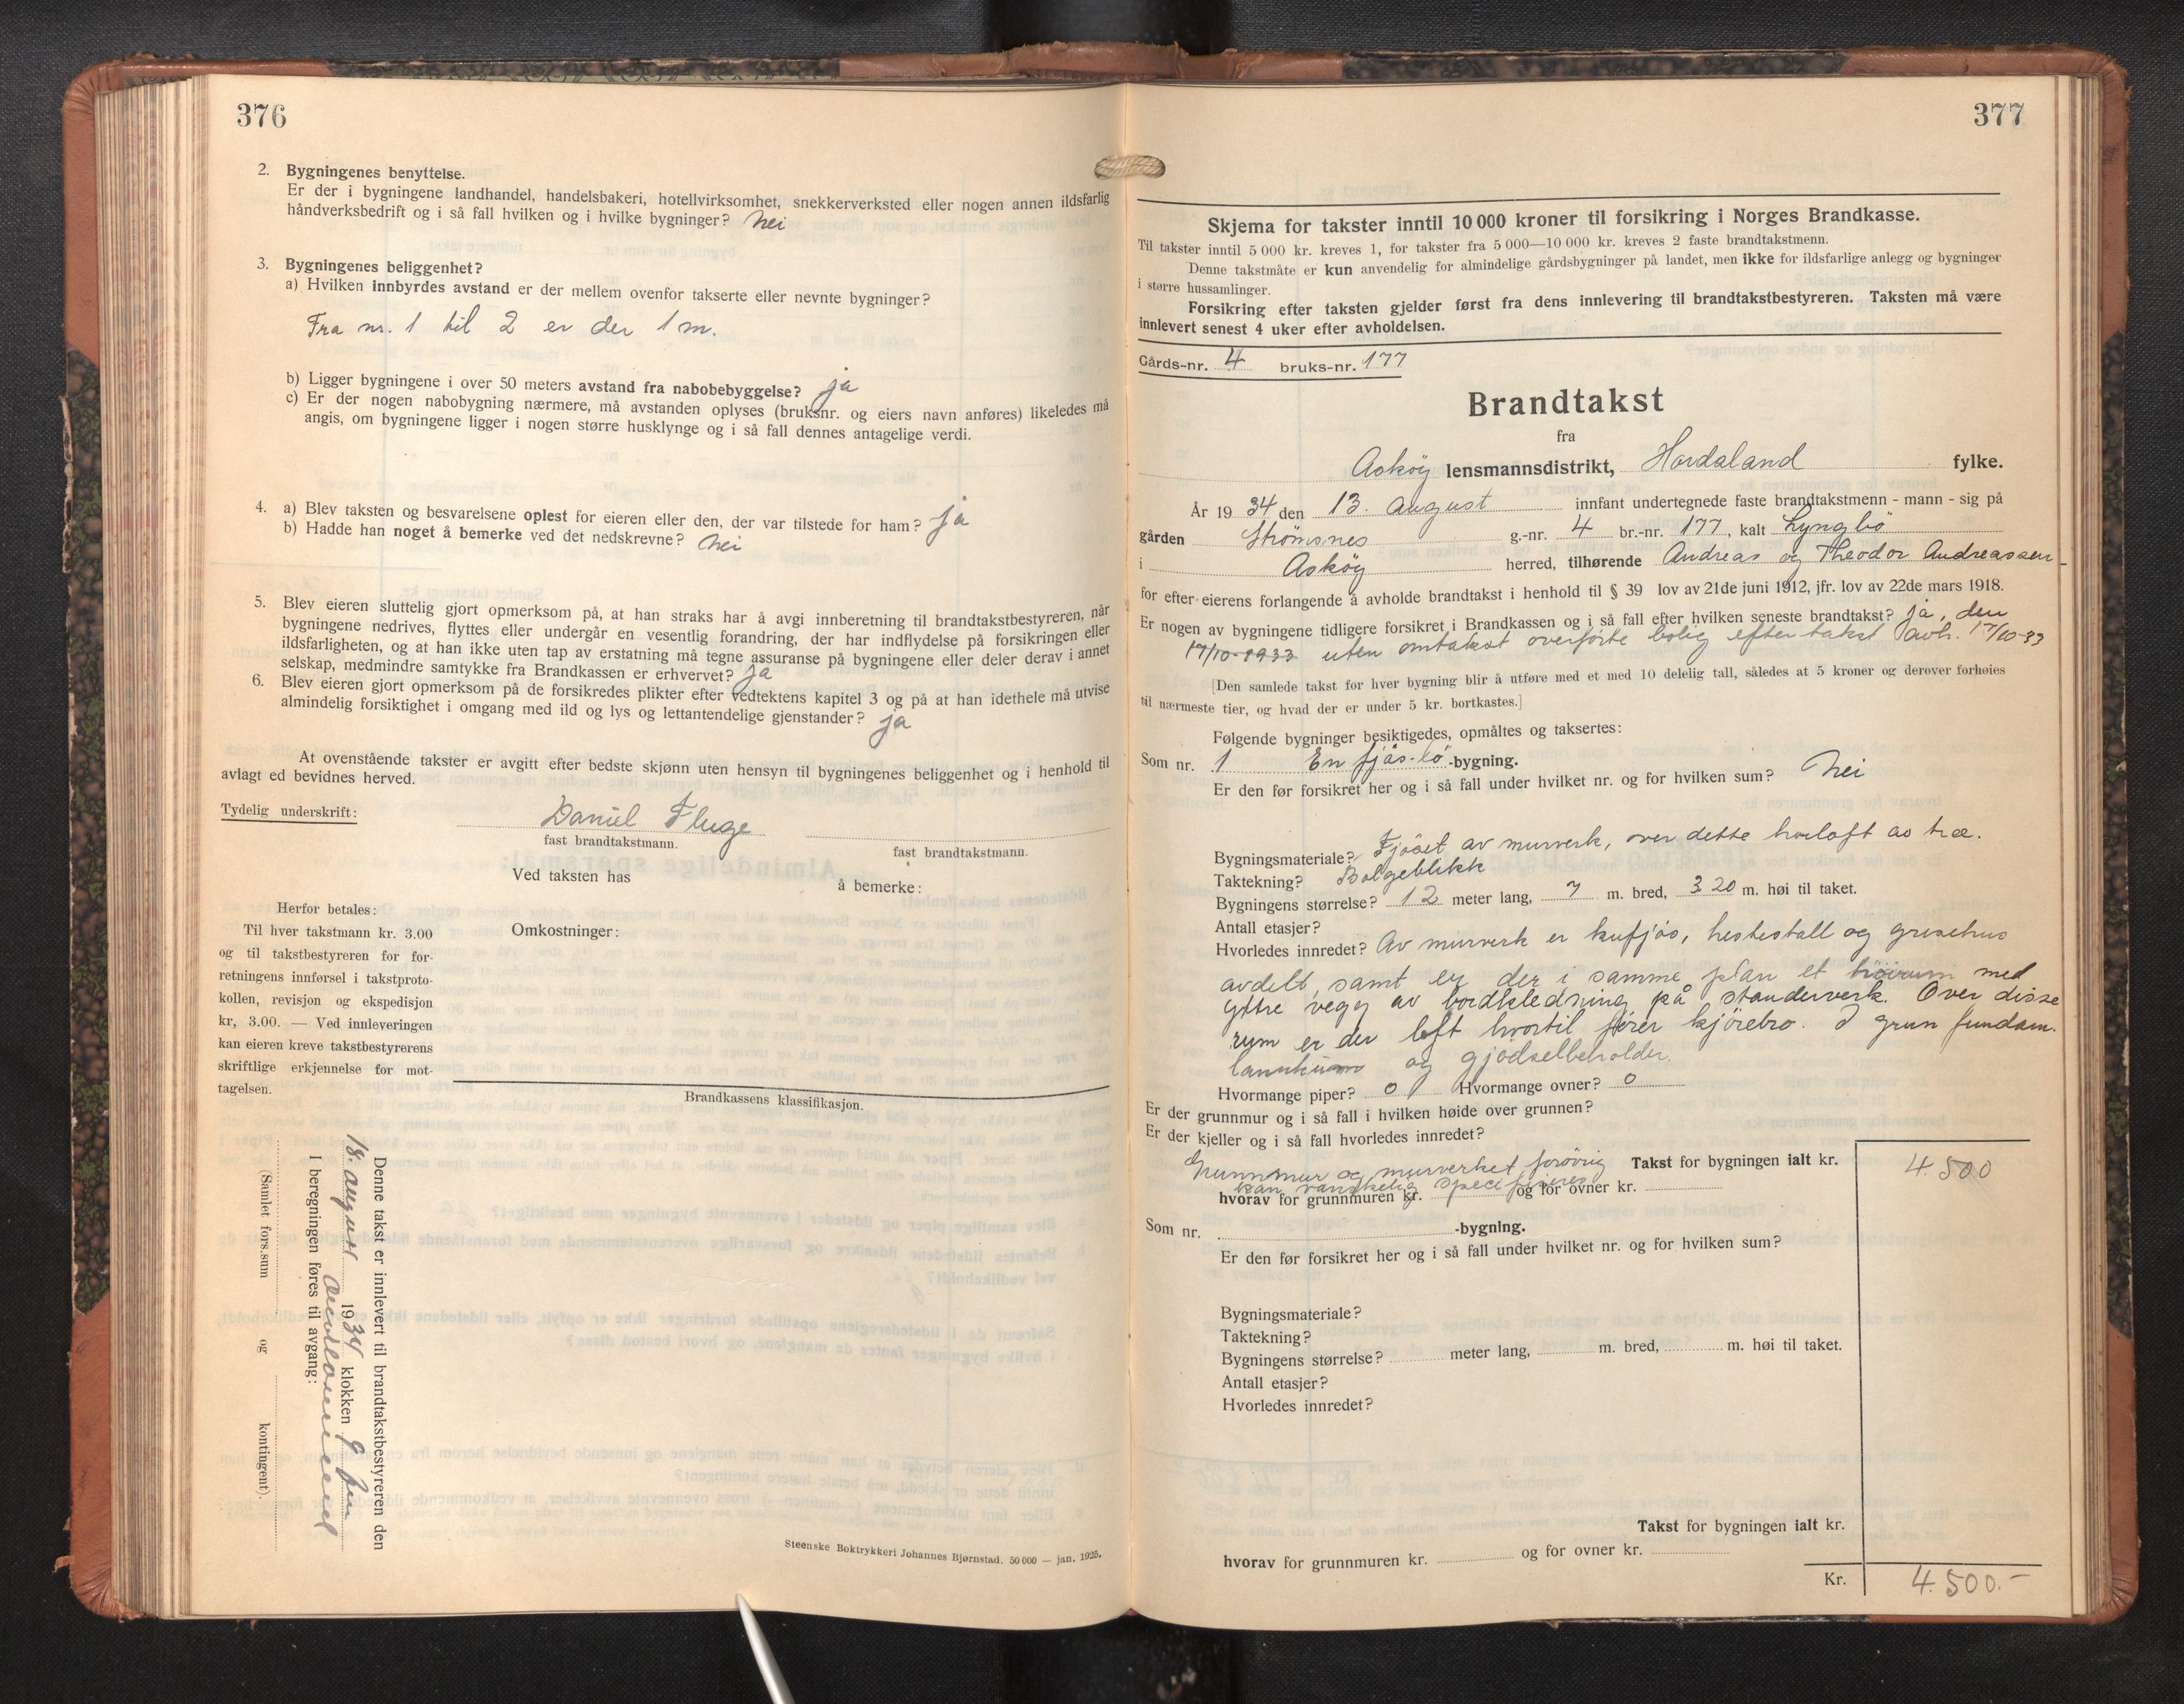 376
2. Bygningenes benyttelse.
Er der i bygningene landhandel, handelsbakeri, hotellvirksomhet, snekkerverksted eller nogen annen ildsfarlig
håndverksbedrift og i så fall hvilken og i hvilke bygninger? Nei
3. Bygningenes beliggenhet?
a) Hvilken innbyrdes avstand er der mellem ovenfor takserte eller nevnte bygninger?
Fra nr. 1 til 2 er der 1 m.
b) Ligger bygningene i over 50 meters avstand fra nabobebyggelse? ja
c) Er der nogen nabobygning nærmere, må avstanden oplyses (bruksnr. og eiers navn anføres) likeledes må
angis, om bygningene ligger i nogen større husklynge og i så fall dennes antagelige verdi.
4. a) Blev taksten og besvarelsene oplest for eieren eller den, der var tilstede for ham? ja
b) Hadde han noget å bemerke ved det nedskrevne? Nei
5. Blev eieren sluttelig gjort opmerksom på, at han straks har å avgi innberetning til brandtakstbestyreren, når
bygningene nedrives, flyttes eller undergår en vesentlig forandring, der har indflydelse på forsikringen eller
ildsfarligheten, og at han ikke uten tap av erstatning må tegne assuranse på bygningene eller deler derav i annet
selskap, medmindre samtykke fra Brandkassen er erhvervet? ja
6. Blev eieren gjort opmerksom på de forsikredes plikter efter vedtektens kapitel 3 og på at han idethele må utvise
almindelig forsiktighet i omgang med ild og lys og lettantendelige gjenstander? ja
At ovenstående takster er avgitt efter bedste skjønn uten hensyn til bygningenes beliggenhet og i henhold til
avlagt ed bevidnes herved.
Tydelig underskrift: Daniel Fluge
fast brandtakstmann. fast brandtakstmann.
Ved taksten has å bemerke:
Herfor betales:
Til hver takstmann kr. 3.00
og til takstbestyreren for for-
retningens innførsel i takstproto-
kollen, revisjon og ekspedisjon
kr, 3.00. — Ved innleveringen
kan eieren kreve takstbestyrerens
skriftlige erkjennelse for mot-
tagelsen.
Omkostninger:
Brandkassens klassifikasjon.
Denne takst er innlevert til brandtakstbestyreren den
18. august 1934 klokken 9 fm
I beregningen føres til avgang:
(Samlet fors.sum og kontingent).
Steenske Boktrykkeri Johannes Bjørnstad. 50 000 — jan. 1925.
377
Skjema for takster inntil 10 000 kroner til forsikring i Norges Brandkasse.
Til takster inntil 5 000 kr. kreves 1, for takster fra 5 000—10 000 kr. kreves 2 faste brandtakstmenn.
Denne takstmåte er kun anvendelig for almindelige gårdsbygninger på landet, men ikke for ildsfarlige anlegg og bygninger
i større hussamlinger.
Forsikring efter taksten gjelder først fra dens innlevering til brandtakstbestyreren. Taksten må være
innlevert senest 4 uker efter avholdelsen.
Gårds-nr. 4 bruks-nr. 177
Brandtakst
fra
Askøy lensmannsdistrikt, Hordaland fylke.
År 1934 den 13. august innfant undertegnede faste brandtakstmenn - mann - sig på
gården Strömsnes g.-nr. 4 br.-nr. 177, kalt Lyngbö
i Askøy herred, tilhørende Andreas og Theodor Andreassen
for efter eierens forlangende å avholde brandtakst i henhold til § 39 lov av 21de juni 1912, jfr. lov av 22de mars 1918.
Er nogen av bygningene tidligere forsikret i Brandkassen og i så fall efter hvilken seneste brandtakst? ja, den
17/10-1933 uten omtakst overførte bolig efter takst avh. 17/10-33
[Den samlede takst for hver bygning blir å utføre med et med 10 delelig tall, således at 5 kroner og derover forhøies
til nærmeste tier, og hvad der er under 5 kr. bortkastes.]
Følgende bygninger besiktigedes, opmåltes og taksertes:
Som nr. 1 En fjøs-lö-bygning.
Er den før forsikret her og i så fall under hvilket nr. og for hvilken sum? Nei
Bygningsmateriale? Fjöset av murverk, over dette høiloft av træ.
Taktekning? Bølgeblikk
Bygningens størrelse? 12 meter lang, 7 m. bred, 3 20 m. høi til taket.
Antall etasjer?
Hvorledes innredet? Av murverk er kufjøs, hestestall og grisehus
avdelt, samt er der i samme plan et høirum med
yttre vegg av bordkledning på standerverk. Over disse
rum er der loft hvortil fører kjörebro. I grun fundam.
og gjödselbeholder.
Hvormange piper? 0 Hvormange ovner? 0
Er der grunnmur og i så fall i hvilken høide over grunnen?
Er der kjeller og i så fall hvorledes innredet?
Grunnmur og murverket forøvrig Takst for bygningen ialt kr. 4.500
kan vanskelig specifiseres
hvorav for grunnmuren kr. og for ovner kr.
Som nr. -bygning.
Er den før forsikret her og i så fall under hvilket nr. og for hvilken sum?
Bygningsmateriale?
Taktekning?
Bygningens størrelse? meter lang, m. bred, m. høi til taket.
Antall etasjer?
Hvorledes innredet?
Takst for bygningen ialt kr.
hvorav for grunnmuren kr. og for ovner kr.
Kr. 4.500.-